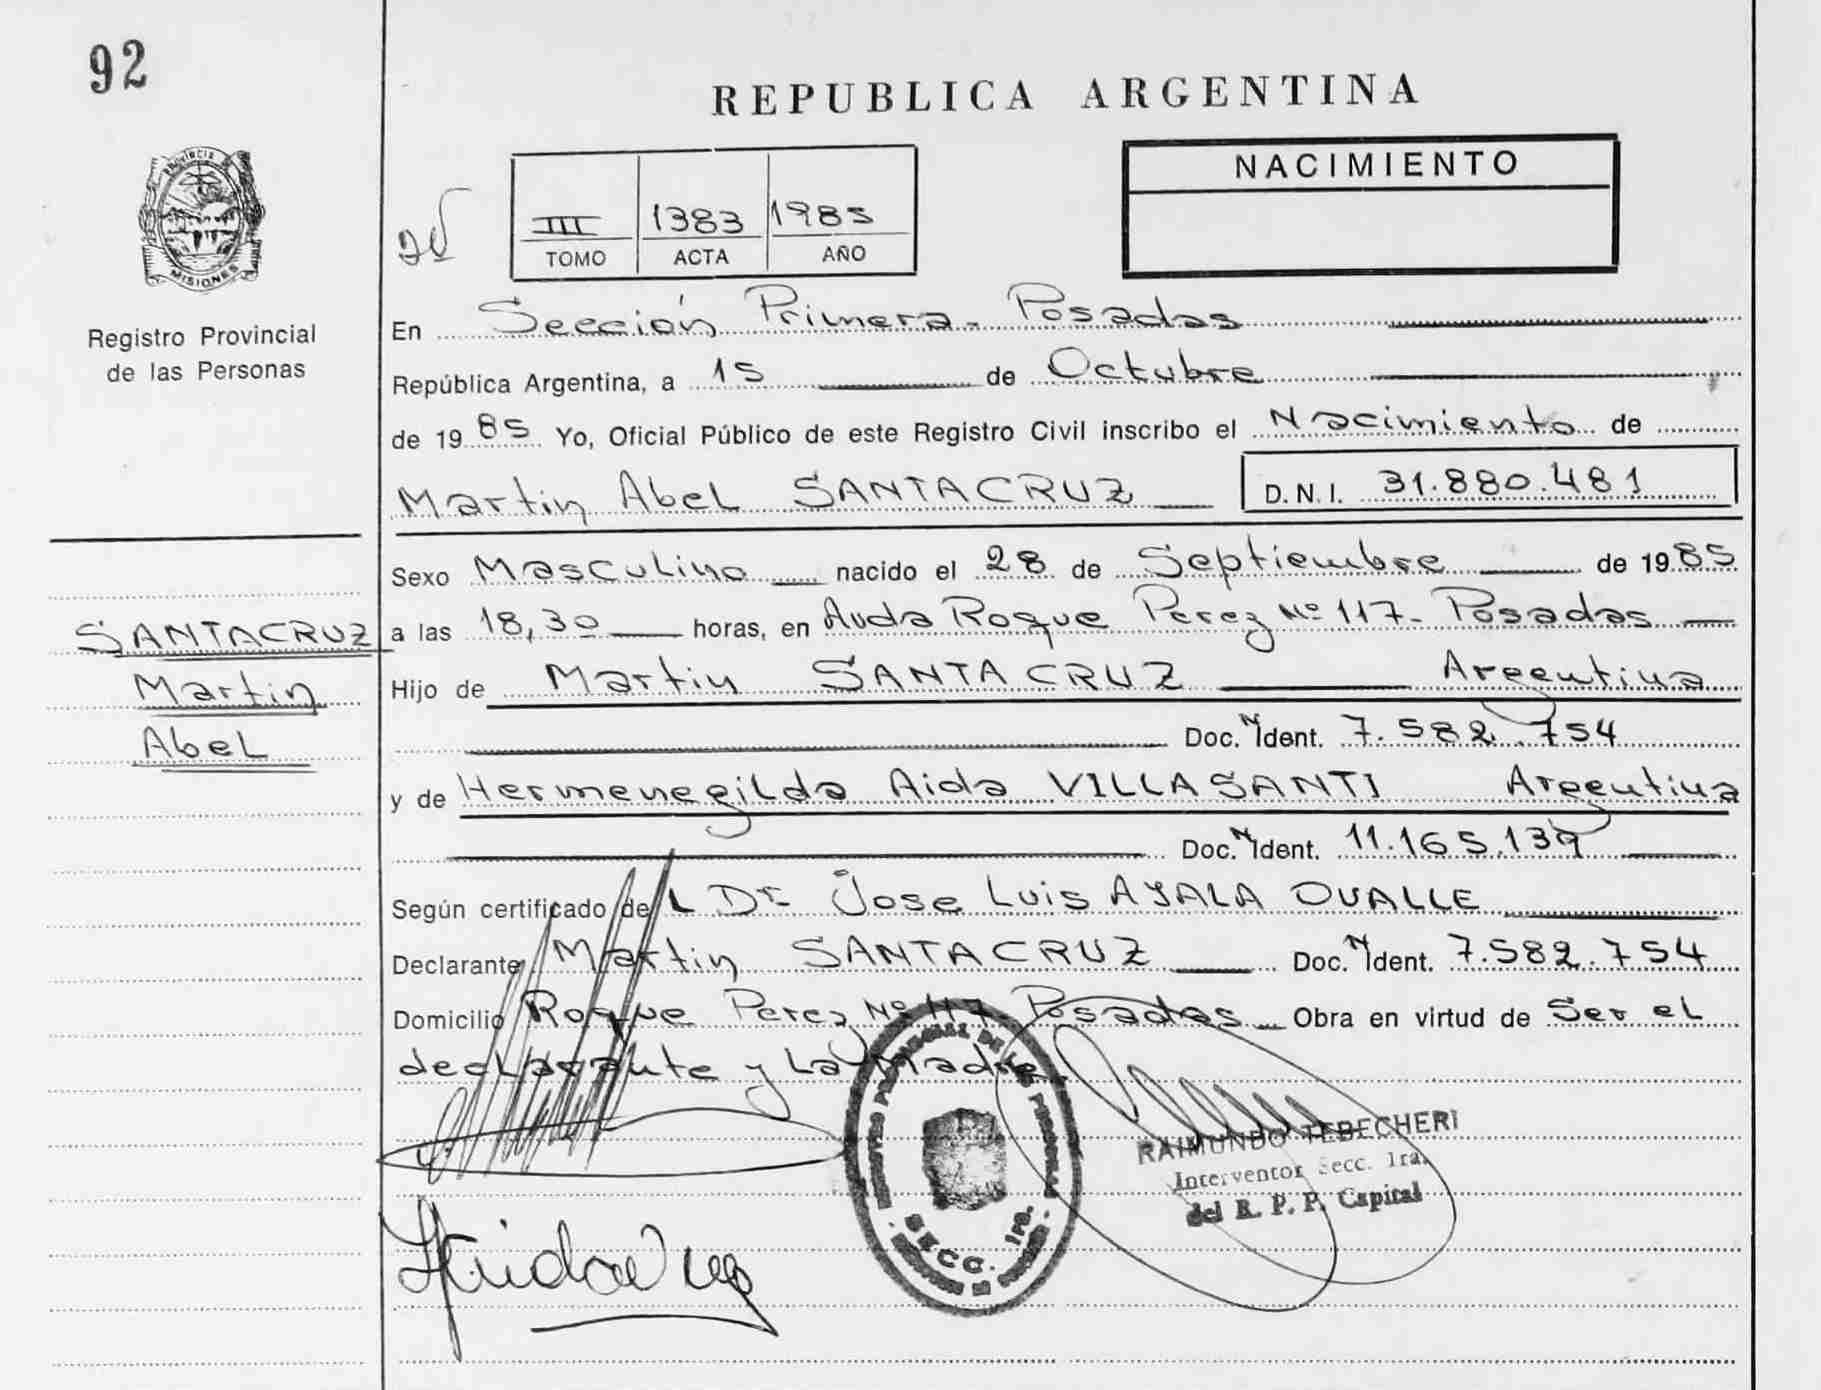 92
REPUBLICA ARGENTINA
Provincia
MISIONES
Registro Provincial
de las Personas
III 1383 1985
TOMO ACTA AÑO
NACIMIENTO
En Sección Primera - Posadas
República Argentina, a 15 de Octubre
de 1985 Yo, Oficial Público de este Registro Civil inscribo el Nacimiento de
Martin Abel SANTACRUZ D.N.I. 31.880.481
Sexo Masculino nacido el 28 de Septiembre de 1985
SANTACRUZ
Martin
Abel
a las 18,30 horas, en Avda Roque Perez Nº 117 - Posadas
Hijo de Martin SANTACRUZ Argentina
Doc. N Ident. 7.582.754
y de Hermenegilda Aida VILLASANTI Argentina
Doc. N Ident. 11.165.139
Según certificado del Dr Jose Luis AYALA OVALLE
Declarante Martin SANTACRUZ Doc. N Ident. 7.582.754
Domicilio Roque Perez Nº 117 Posadas Obra en virtud de Ser el
declarante y La Madre.
RAIMUNDO TEBECHERI
Interventor Secc. 1ra.
del R. P. P. Capital
SECC. 1ra.